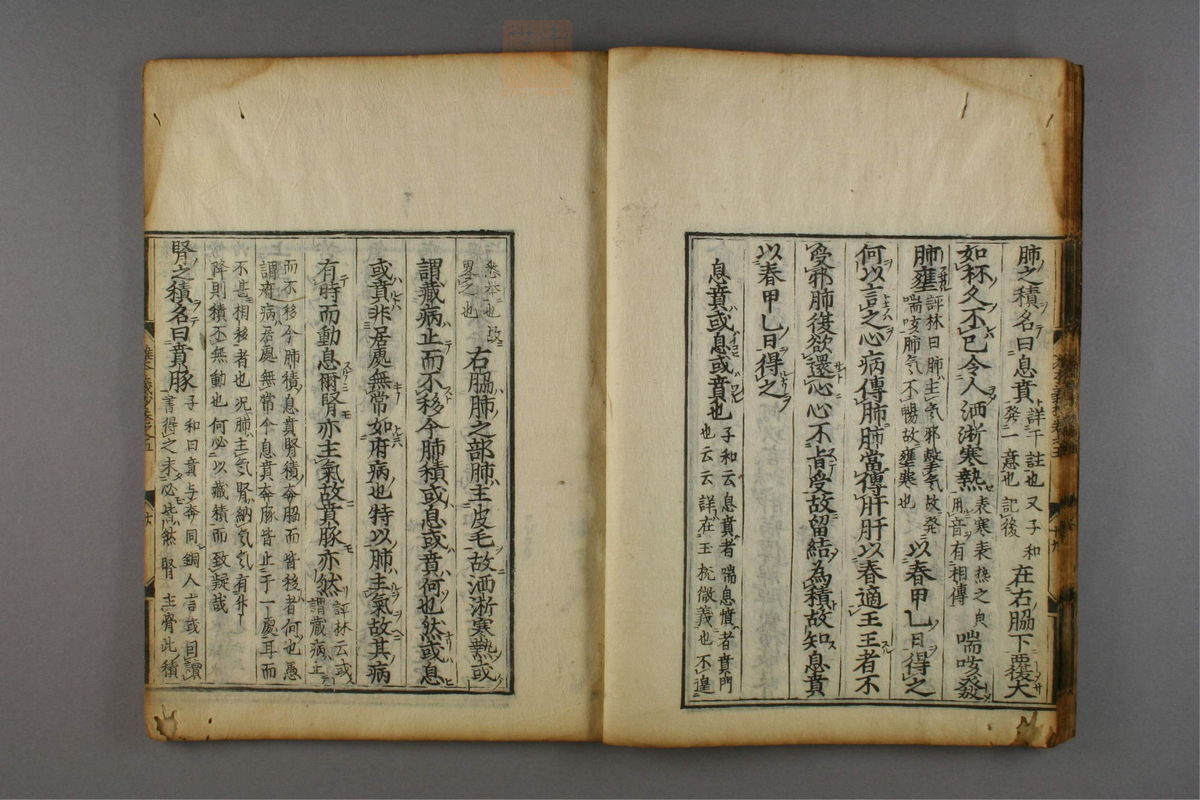 肺之積名曰息賁詳于註也又子和發一意也記後在右脇下覆大
如杯久不已令人洒淅寒熱表寒表熱之皃用音有相傳喘咳發
肺壅評林曰肺主氣邪擊氣故發喘咳肺氣不暢故壅寒也以春甲乙日得之
何以言之心病傳肺肺當傳肝肝以春適王王者不
受邪肺復欲還心心不肯受故留結為積故知息賁
以春甲乙日得之
息賁或息或賁也子和云息賁者喘息憤者賁門也云云詳在玉機微義也不遑
悉本也故畧之也右脇肺之部肺主皮毛故洒淅寒熱或
謂藏病止而不移今肺積或息或賁何也然或息
或賁非居處無常如府病也特以肺主氣故其病
有時而動息爾腎亦主氣故賁豚亦然評林云或謂藏病止
而不移今肺積息賁腎積奔脇而皆移者何也愚
謂府病居處無常今息賁奔豚皆止于一處耳而
不甚相移者也况肺主氣腎納氣氣有升
降則積不無動也何必以藏積而致疑哉
腎之積名曰賁豚子和曰賁与奔同銅人言或曰讀書得之未必然腎主骨此積